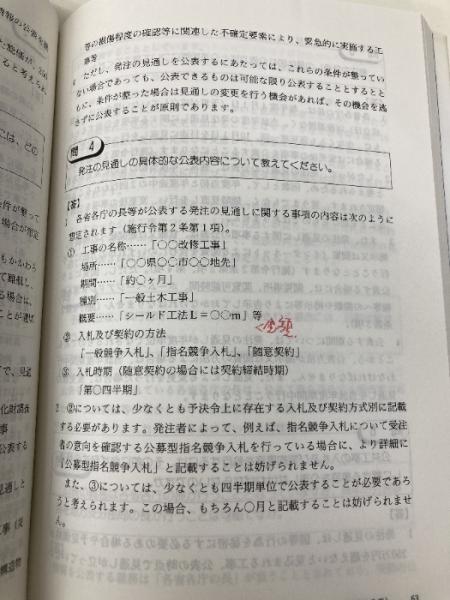 等の損傷程度の確認等に関連した不確定要素により、緊急的に実施する工
事等
ただし、発注の見通しを公表するにあたっては、これらの条件が整ってい
ない場合であっても、公表できるものは可能な限り公表することとするとと
もに、条件が整った場合は見通しの変更を行う機会があれば、その機会を逃
さずに公表することが原則であります。
問 4
発注の見通しの具体的な公表内容について教えてください。
【答】
1 各省各庁の長等が公表する発注の見通しに関する事項の内容は次のように
想定されます（施行令第2条第1項）。
① 工事の名称……「○○改修工事」
場所……「○○県○○市○○地先」
期間……「約○ヶ月」
種別……「一般土木工事」
概要……「シールド工法L＝○○m」等
② 入札及び契約の方法
「一般競争入札」、「指名競争入札」、「随意契約」
③ 入札時期（随意契約の場合には契約締結時期）
「第○四半期」
2 ②については、少なくとも予決令上に存在する入札及び契約方式別に記載
する必要があります。発注者によって、例えば、指名競争入札について受注
者の意向を確認する公募型指名競争入札を行っている場合に、より詳細に
「公募型指名競争入札」と記載することは妨げられません。
また、③については、少なくとも四半期単位で公表することが必要であろ
うと考えられます。この場合、もちろん○月と記載することは妨げられませ
ん。
63